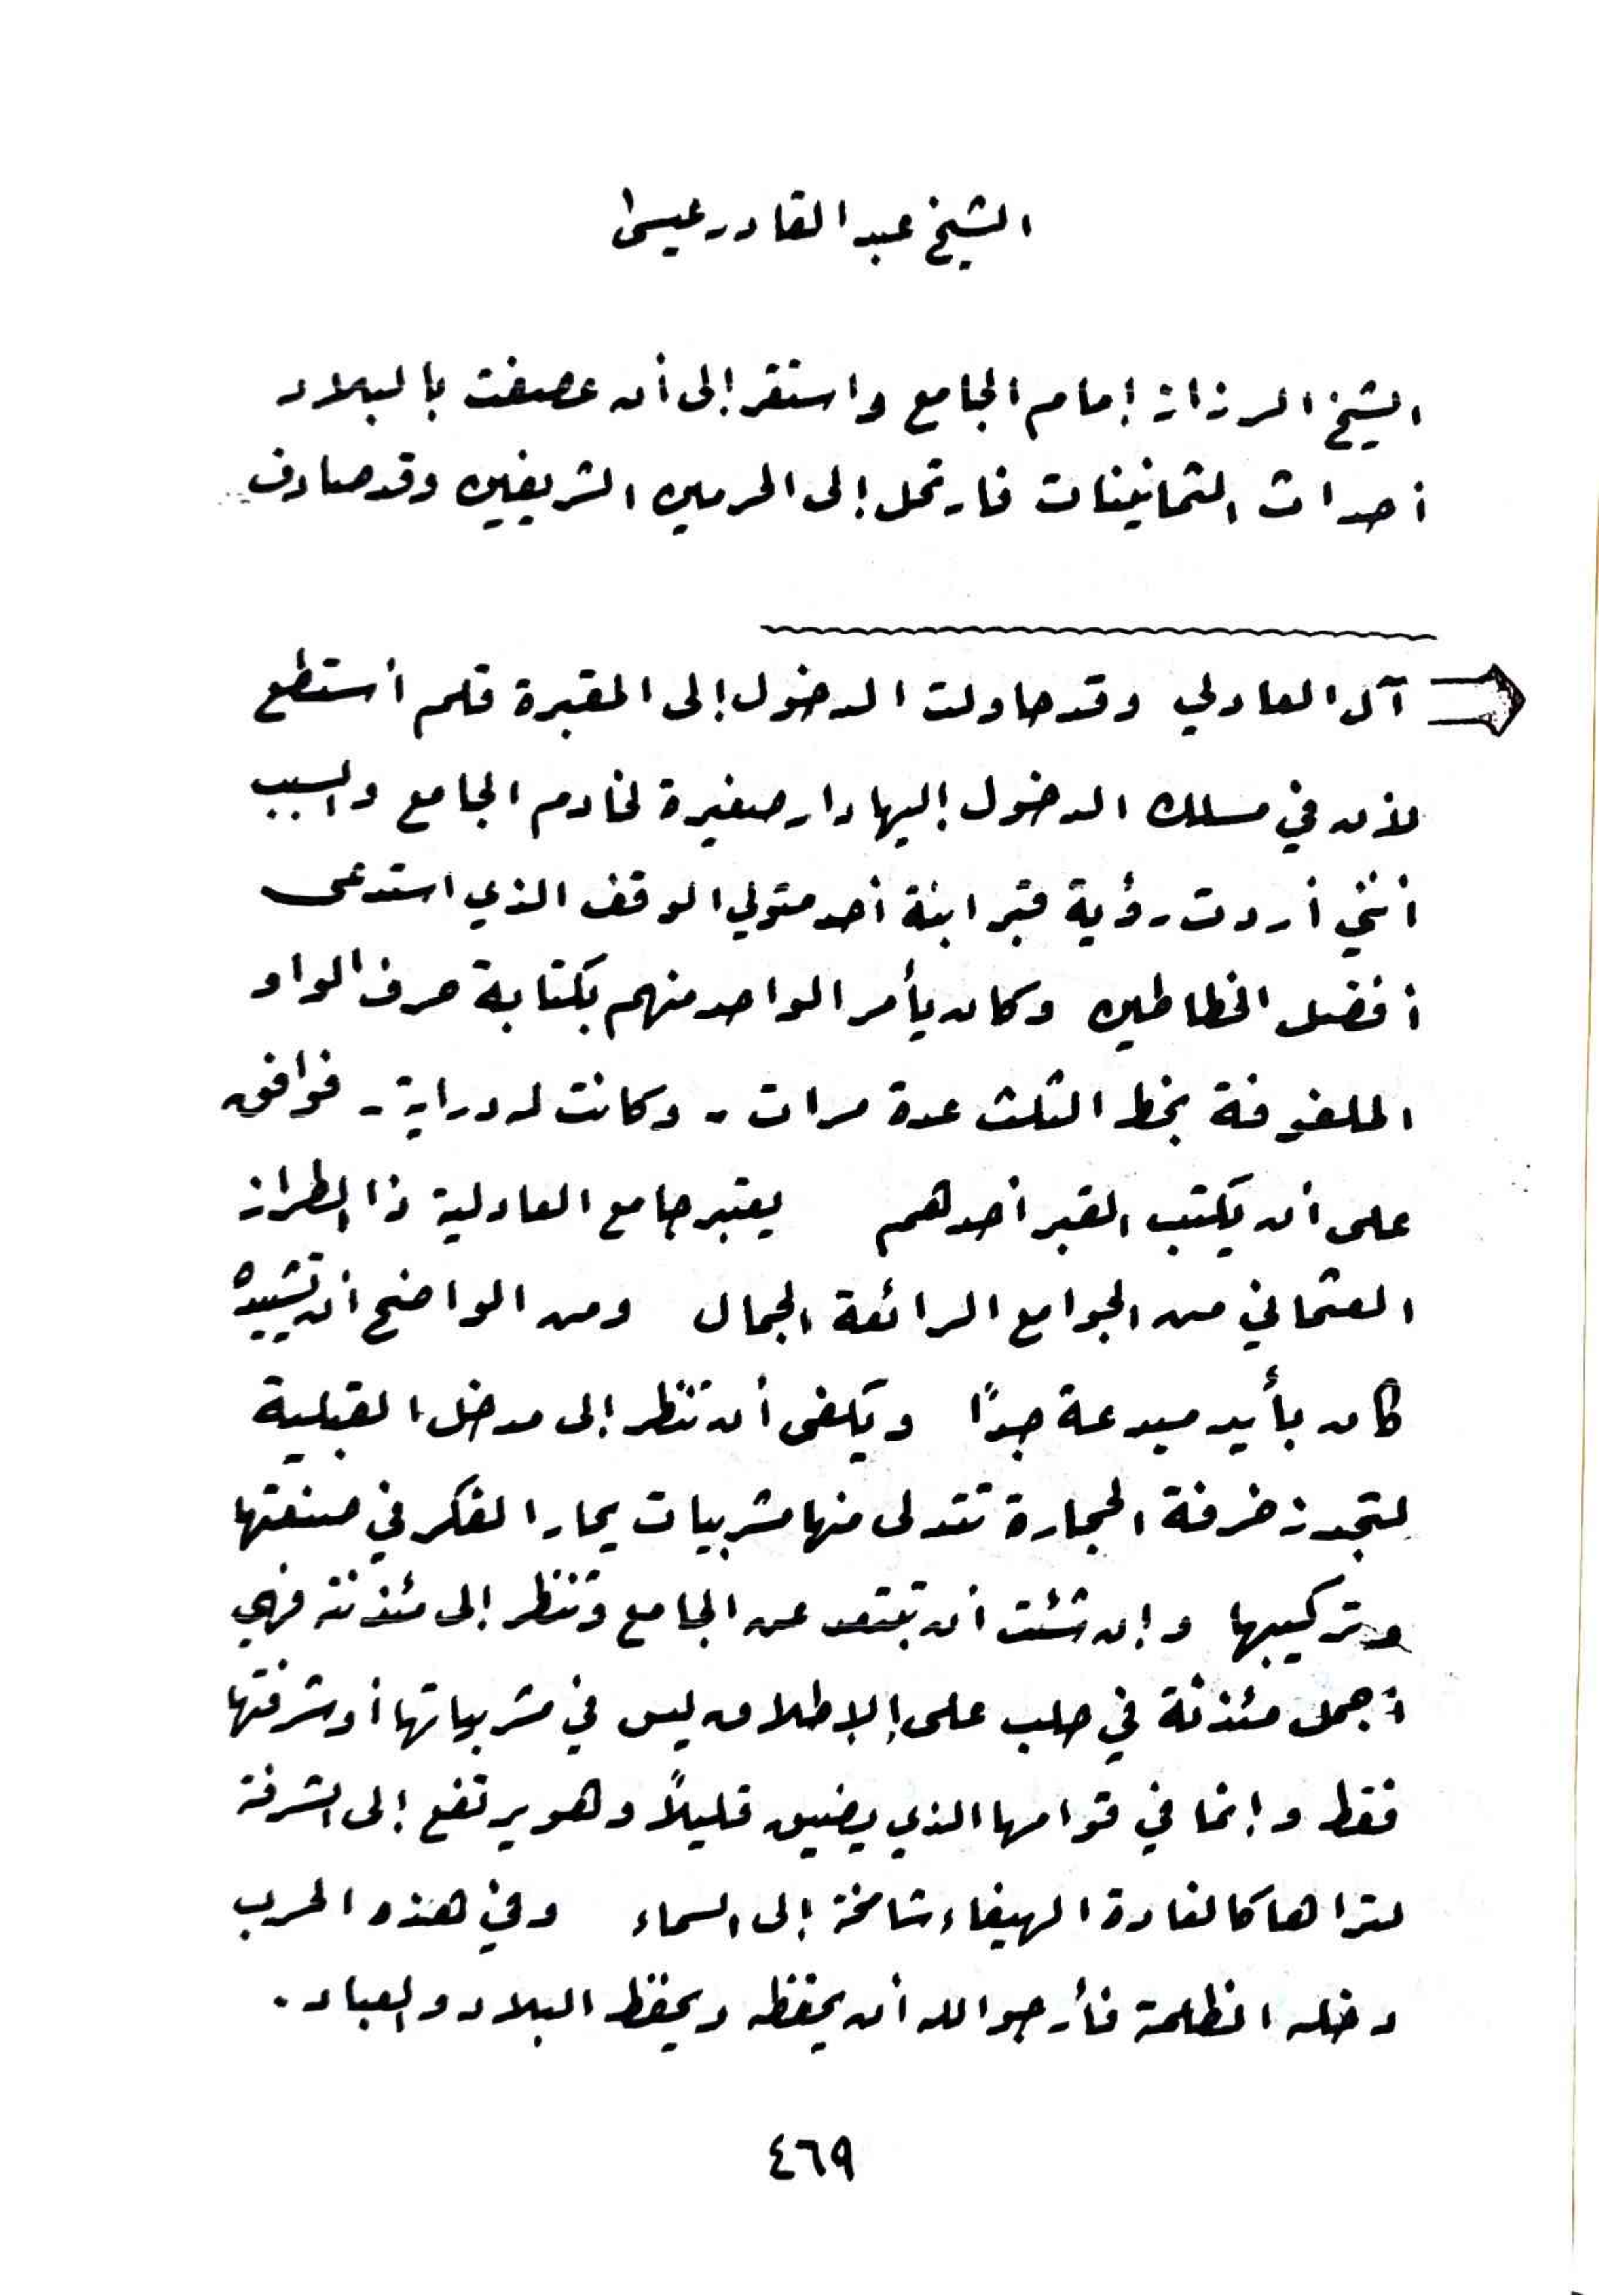 الشيخ عبد القادر عيسى
الشيخ الرزاز إمام الجامع واستقر إلى أن عصفت بالبلاد
أحداث الثمانينات فارتحل إلى الحرمين الشريفين وقد صادف
آل العادلي وقد حاولت الدخول إلى المقبرة فلم أستطع
لأن في مسلك الدخول إليها دار صغيرة لخادم الجامع والسبب
أنني أردت رؤية قبر ابنة أحد متولي الوقف الذي استدعى
أفضل الخطاطين وكان يأمر الواحد منهم بكتابة حرف الواو
الملفوفة بخط الثلث عدة مرات - وكانت له دراية - فوافق
على أن يكتب القبر أحدهم يعتبر جامع العادلية ذا الطراز
العثماني من الجوامع الرائعة الجمال ومن الواضح أن تشييده
كان بأيد مبدعة جداً ويكفي أن تنظر إلى مدخل القبلية
لتجد زخرفة الحجارة تتدلى منها مشربيات يحار الفكر في صنعتها
وتركيبها وإن شئت أن تبتعد عن الجامع وتنظر إلى مئذنته فهي
أجمل مئذنة في حلب على الإطلاق ليس في مشربياتها أو شرفتها
فقط وإنما في قوامها الذي يضيق قليلاً وهو يرتفع إلى الشرفة
لتراها كالغادة الهيفاء شامخة إلى السماء وفي هذه الحرب
دخله الظلمة فأرجو الله أن يحفظه ويحفظ البلاد والعباد.
٤٦٩